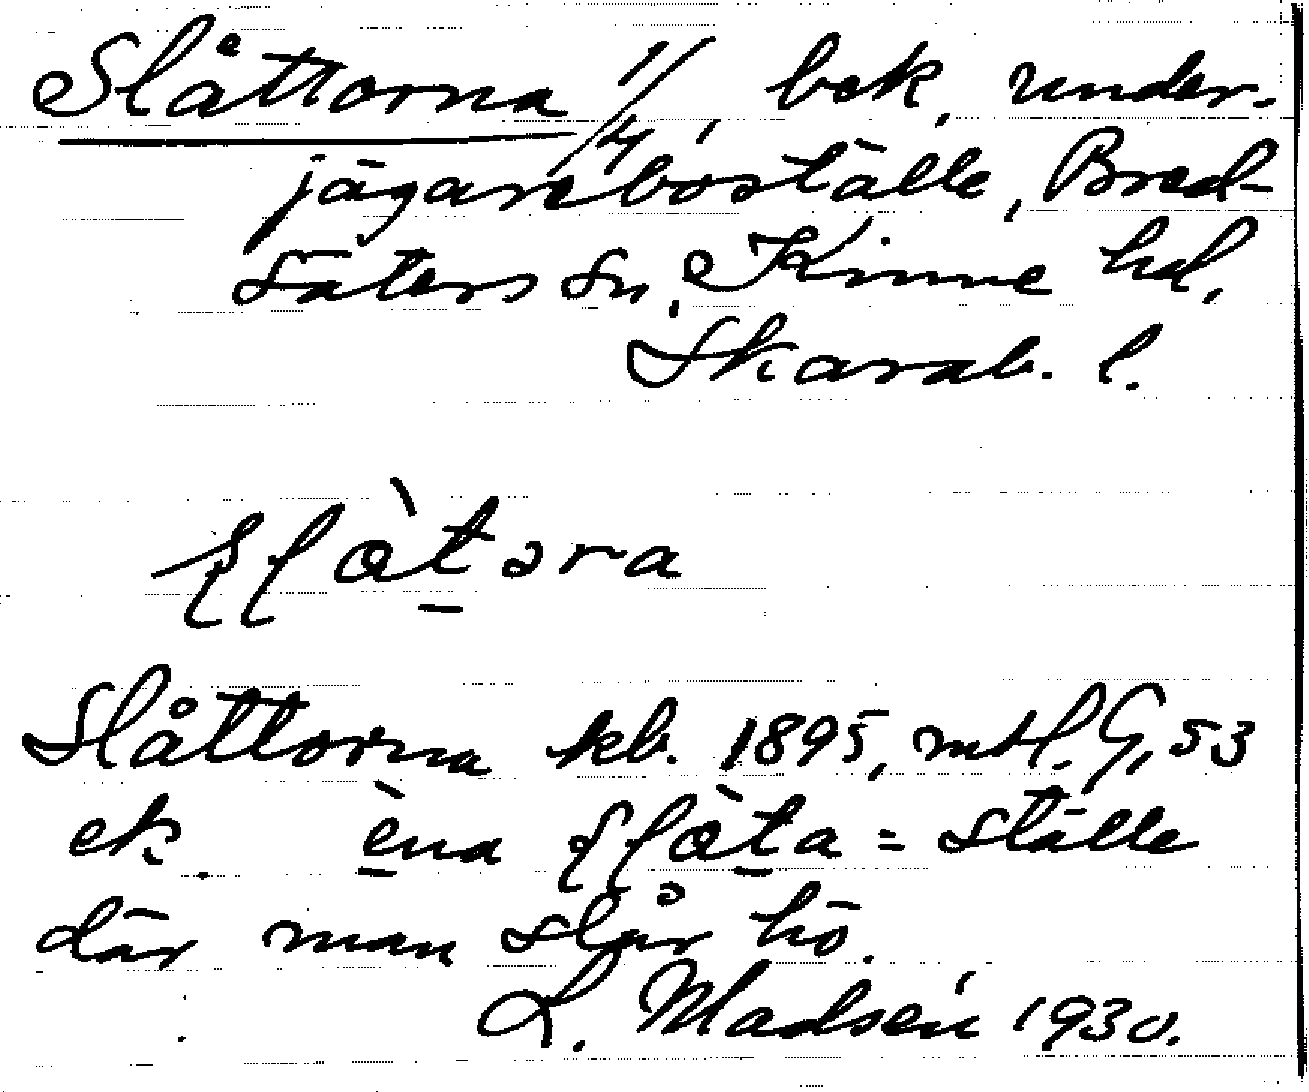 Slåttorna 1/4, bek. under-
jägareboställe, Bred-
säters sn, Kinne hd,
Skarab. l.
ʃl̀atəra
Slåttorna kb. 1895, mtl. G, 53
ek. èna ʃlàta = ställe
där man slår hö.
L. Madsén 1930.